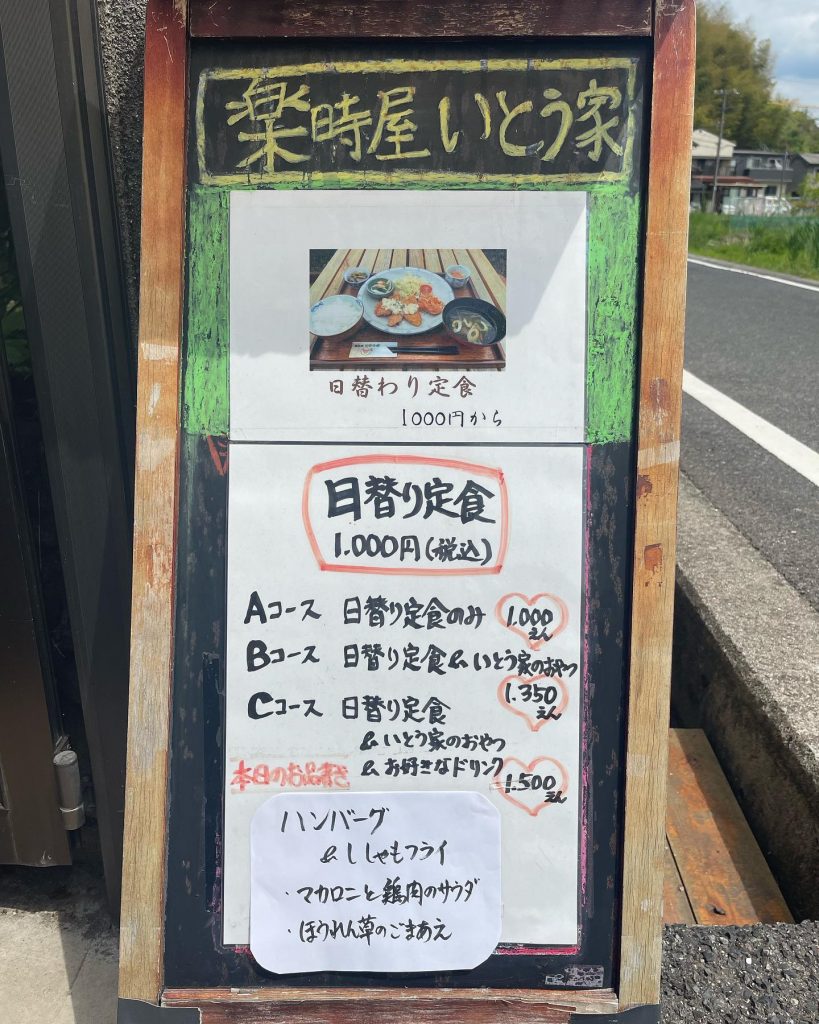 楽時屋いとう家
日替わり定食
1000円から
日替り定食
1.000円(税込)
Aコース 日替り定食のみ 1.000えん
Bコース 日替り定食&いとう家のおやつ
1.350えん
Cコース 日替り定食
&いとう家のおやつ
&お好きなドリンク 1.500えん
本日のお品書き
ハンバーグ
&ししゃもフライ
・マカロニと鶏肉のサラダ
・ほうれん草のごまあえ